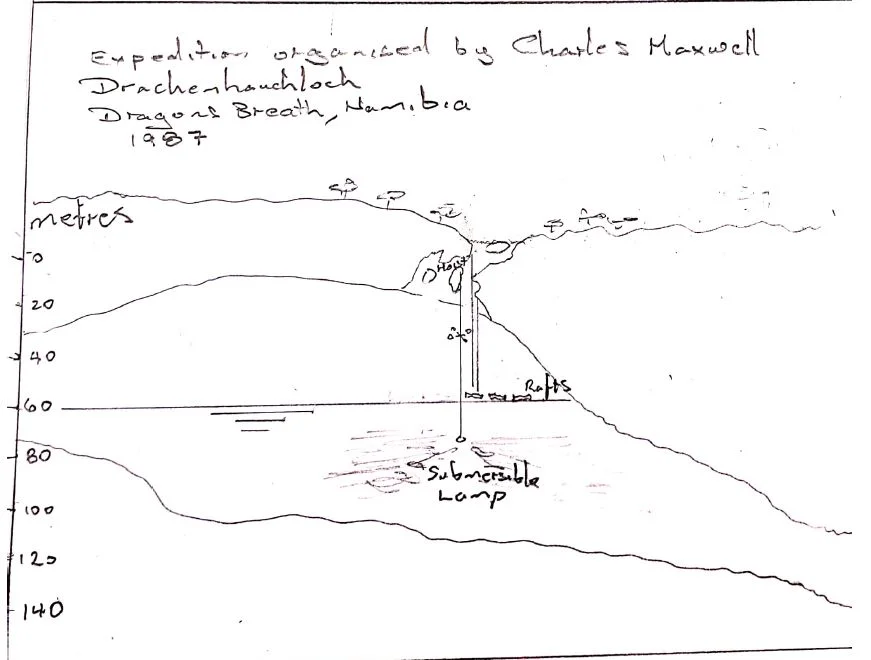 Expedition organised by Charles Maxwell
Drachenhauchloch
Dragons Breath, Namibia
1987
metres
0
Hoist
20
40
Rafts
60
80
Submersible
Lamp
100
120
140